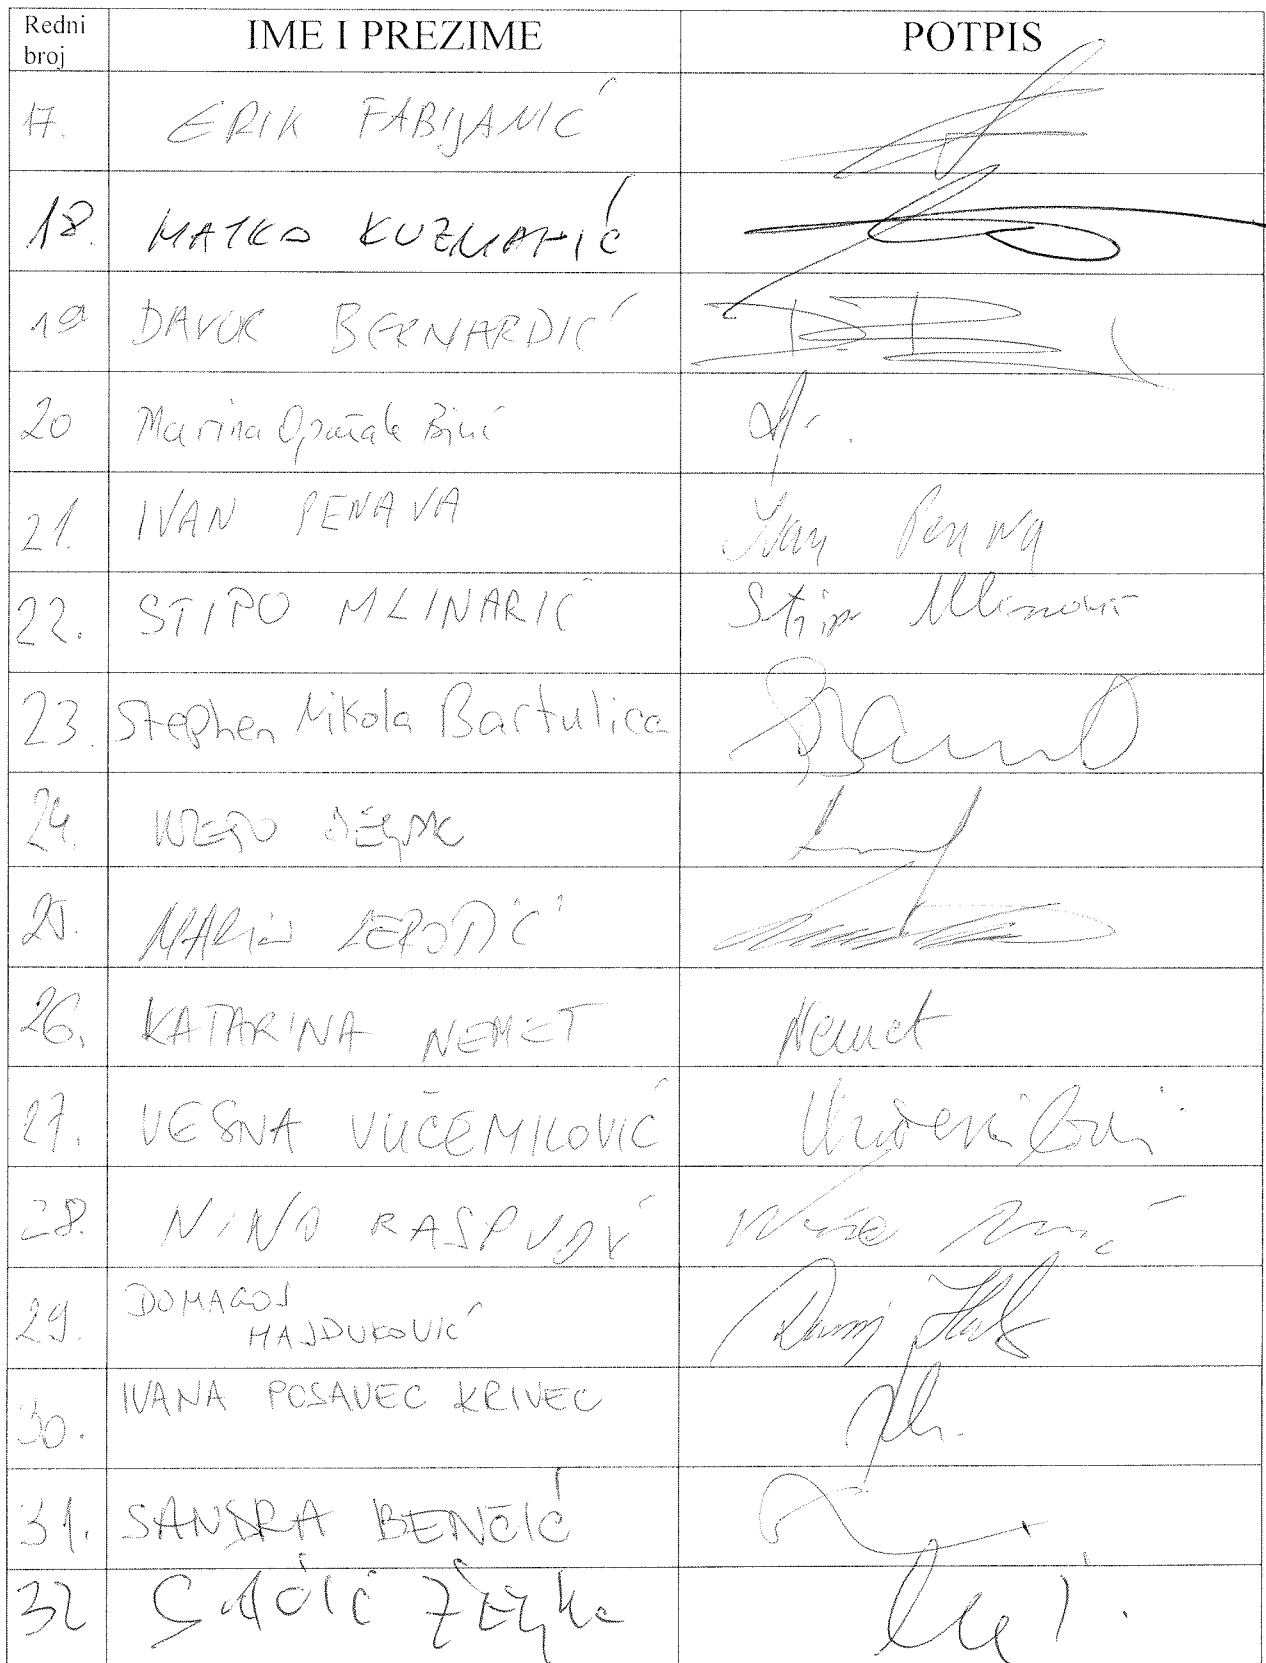 Redni broj IME I PREZIME POTPIS
17. ERIK FABIJANIĆ
18. MATKO KUZMANIĆ
19 DAVOR BERNARDIĆ
20 Marina Opačak Bilić
21. IVAN PENAVA Ivan Penava
22. STIPO MLINARIĆ Stipo Mlinarić
23. Stephen Nikola Bartulica
24. KREŠO BELJAK
25. MARIN
26. KATARINA NEMET Nemet
27. VESNA VUČEMILOVIĆ Vučemilović
28. NINO RASPUDIĆ
29. DOMAGOJ
HAJDUKOVIĆ
30. IVANA POSAVEC KRIVEC
31. SANDRA BENČIĆ
32 SAČIĆ Željko